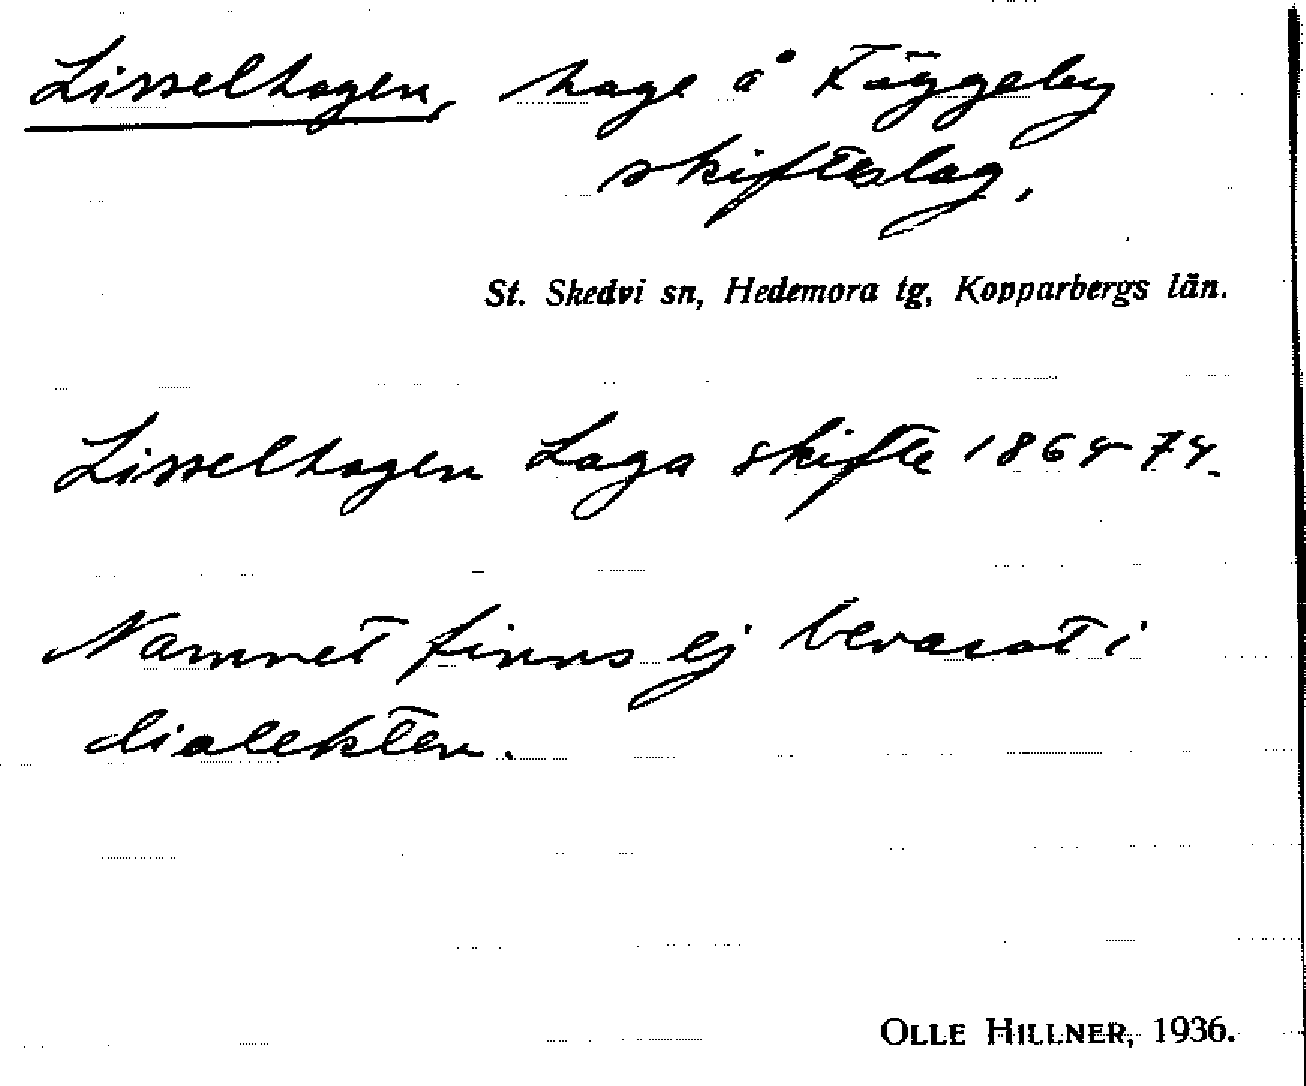 Lisselhagen, hage å Täggeby
skifteslag.
St. Skedvi sn, Hedemora tg, Kopparbergs län.
Lisselhagen Laga skifte 1864-74.
Namnet finns ej bevarat i
dialekten.
OLLE HILLNER, 1936.